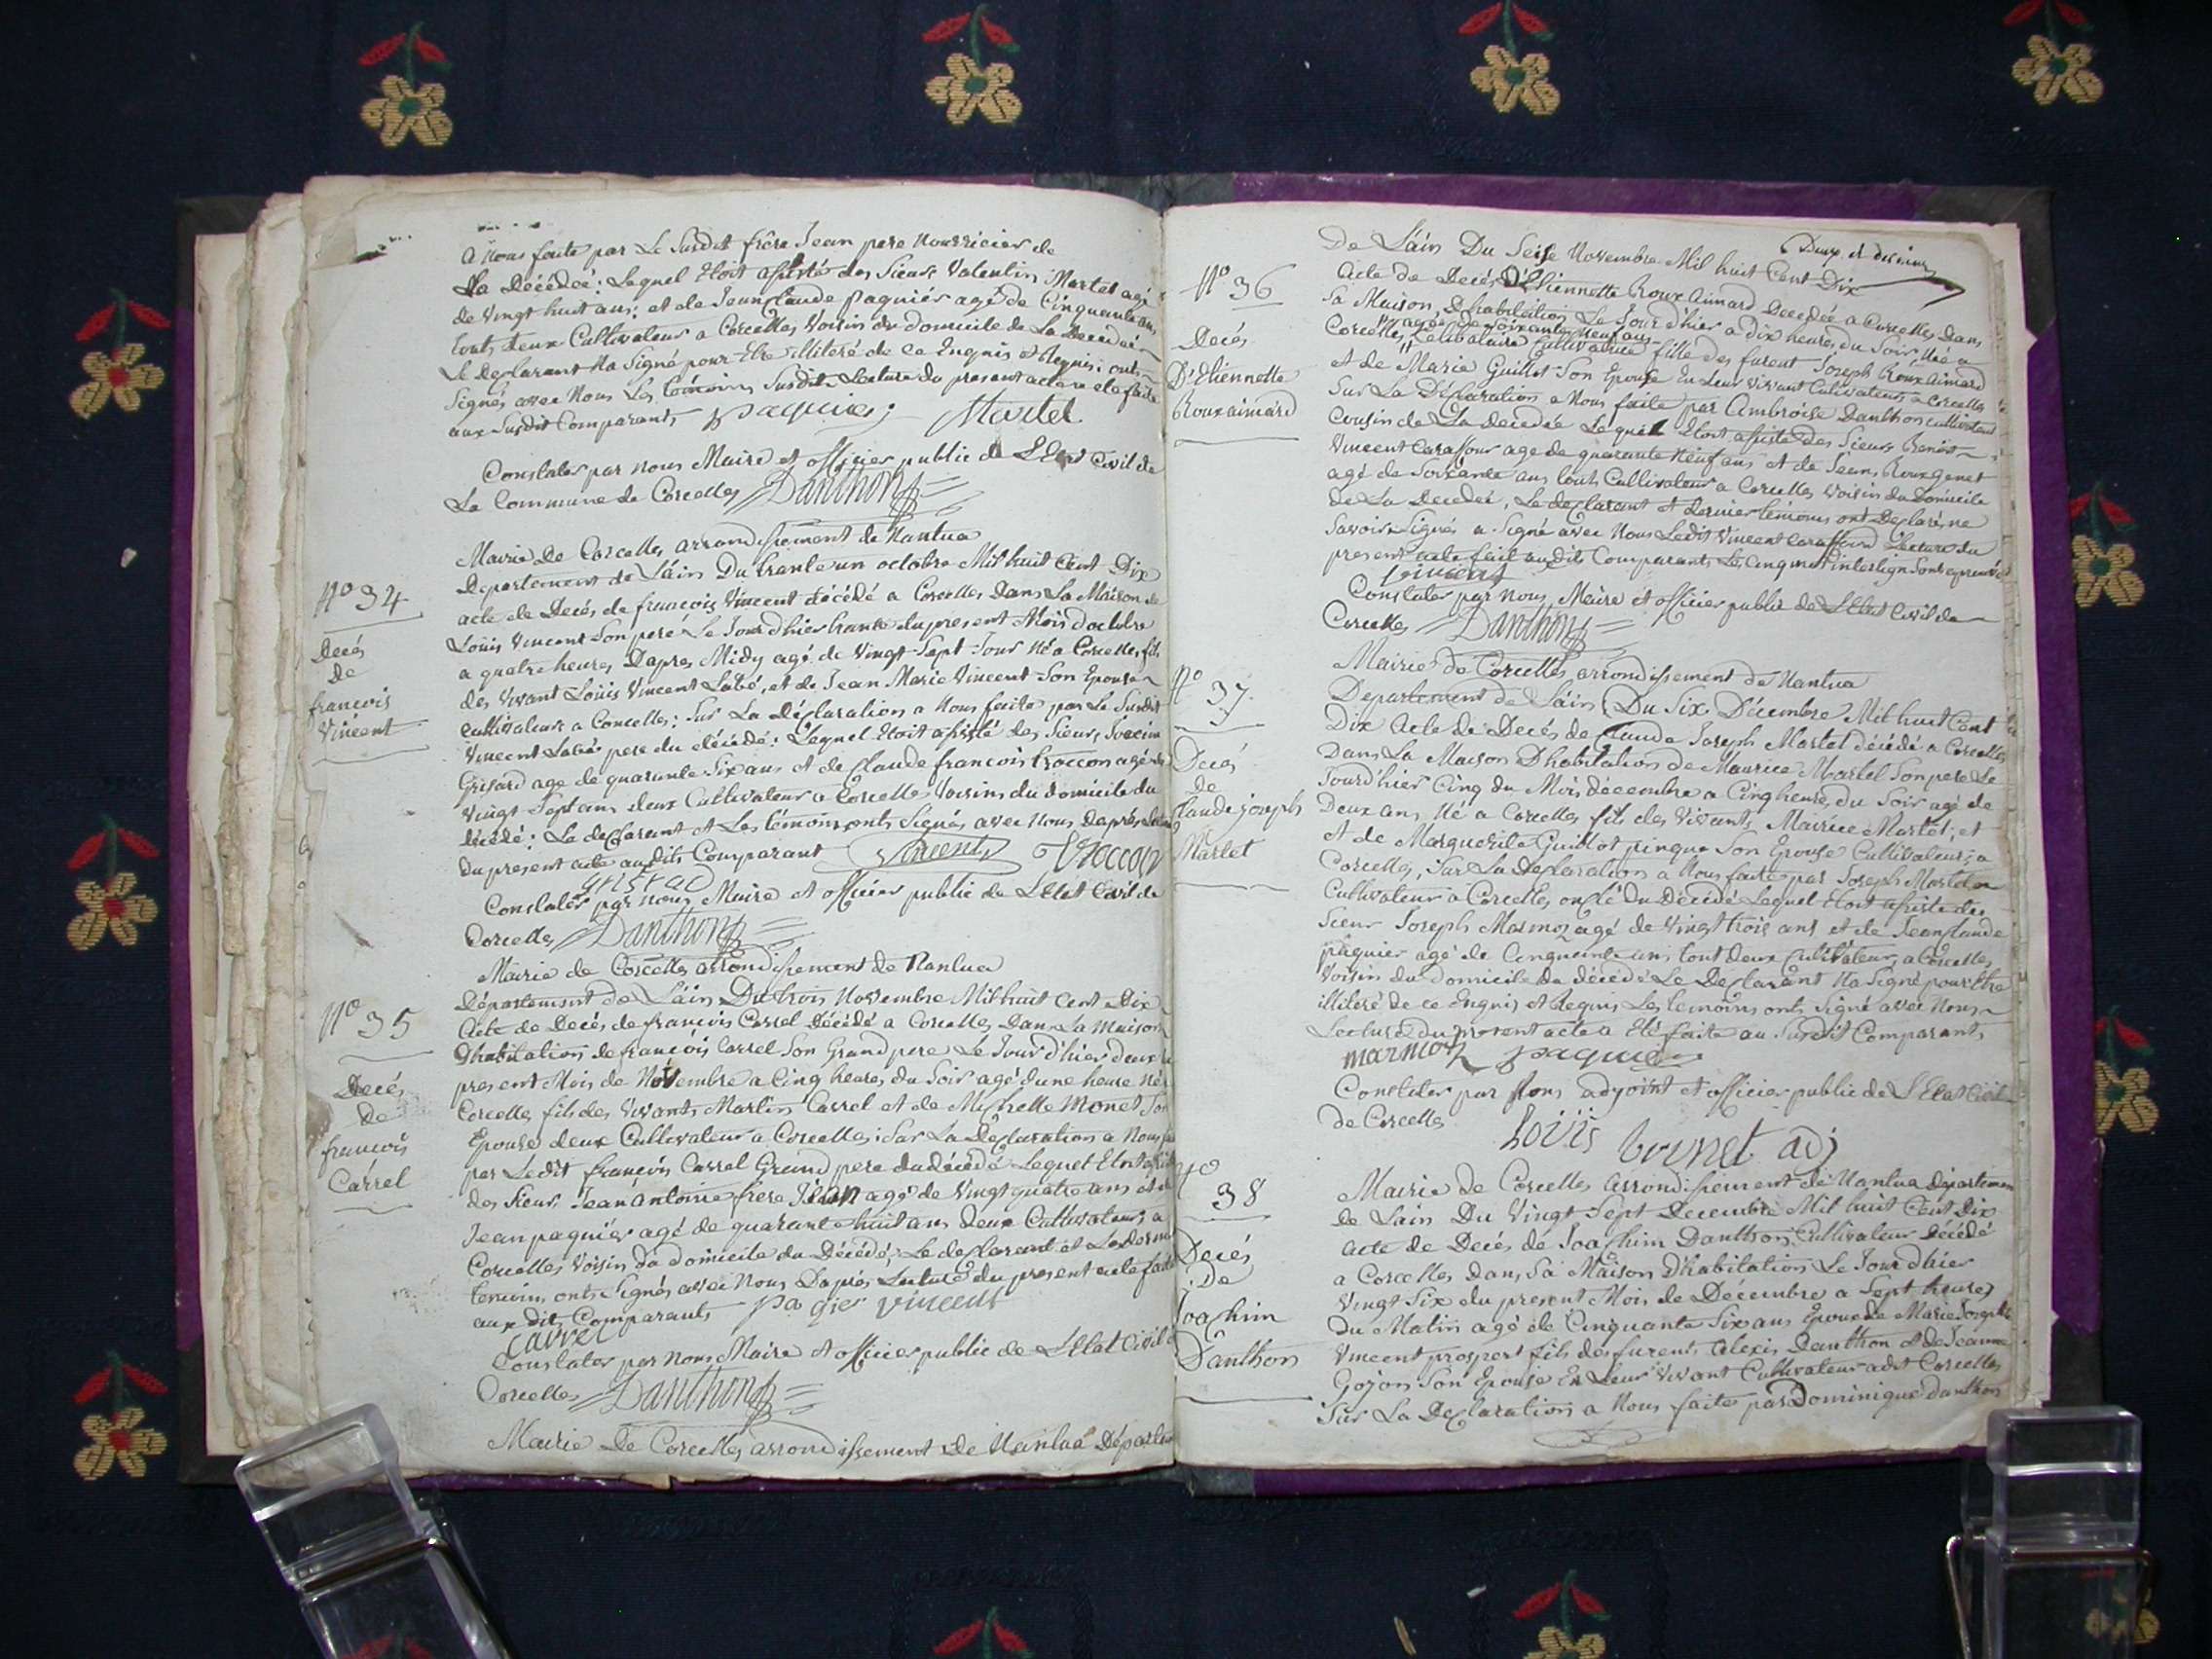 a Nous faite par Le Susdit frère Jean pere Nourricier de
La Décédeé: Lequel Etoit assisté des Sieurs Valentin Martel agé
de Vingt huit ans; et de Jean Claude paquiér agé de Cinquante ans
touts deux Cultivateur a Corcelles Voisins du domicile de La Decedeé
Le Declarant Na Signé pour Etre illiteré de ce Enquis et Requis: onts
Signés avec Nous Les témoins Susdits Lecture du present acte a eté faite
aux Susdit Comparants paquier; Martel
Constater par nous Maire et officier public de L'Etat Civil de
La Commune de Corcelles Danthon
Mairie De Corcelles arrondissement de Nantua
Departement de Láin Du trante un octobre Mil huit Cent Dix
N° 34
Decés
de
francois
Vincent
acte de Decés de francois Vincent décédé a Corcelles Dans La Maison de
Loüis Vincent Son peré Le Jour d'hier trante du present Mois doctobre
a quatre heures Dapres Midy agé de Vingt Sept Jour Né a Corcelles fils
des Vivant Loüis Vincent Labé, et de Jean Marie Vincent Son Epouse
Cultivateurs a Corcelles: Sur La Déclaration a Nous faite par Le Susdit
Vincent Labé pere du décédé: Lequel Etoit assisté des Sieurs Joacim
Grisard age de quarante Six ans et de Claude francois troccon agé de
Vingt Sept ans deux Cultivateur a Corcelles Voisins du domicile du
décédé: Le declarant et Les témoins onts Signés avec nous Daprés Lecture
du present acte audits Comparant Vincent Troccon
grisard
Constater par nous Maire et officier public de L'Etat Civil de
Corcelles Danthon
Mairie de Corcelles arrondissement de Nantua
Département de Láin Du trois Novembre Mil huit Cent Dix
N° 35
Decés
de
francois
Carrel
Acte de Decés de francois Carrel Décédé a Corcelles Dans La Maison
Dhabitation de francois Carrel Son Grand pere Le Jour d'hier deux du
present Mois de Novembre a Cinq heures du Soir agé dune heure Né a
Corcelles fils des Vivants Martin Carrel et de Michelle Monet Son
Epouse deux Cultivateur a Corcelles: Sur La Déclaration a Nous faite
par Ledit francois Carrel Grand pere du décédé Lequel Etoit assisté
des Sieurs Jean Antoine frere Jean agé de Vingt quatre ans et de
Jean paquiér agé de quarante huit ans deux Cultivateurs a
Corcelles Voisin du domicile du Décédé; Le declarant et Le Dernier
temoins onts Signés avec Nous Daprés Lecture du present acte faite
aux dits Comparants pa gier vincent
Carrel
Constater par nous Maire et officier public de L'Etat Civil de
Corcelles Danthon
Mairie De Corcelles arrondissement de Nantua Départem
de Láin Du Seise Novembre Mil huit Cent Dix
N° 36
Decés
D'Etiennette
Roux aimard
Acte de Decés D'Etiennette Roux Aimard Decedée a Corcelles dans
Sa Maison Dhabitation Le Jour d'hier a dix heures du Soir Née a
agée de Soixante Neuf ans
Corcelles, Celibataire Cultivatrice fille des furent Joseph Roux aimard
et de Marie Guillot Son Epouse En Leur Vivant Cultivateurs a Corcelles
Sur La Déclaration a Nous faite par Ambroise Danthon Cultivateur
Cousin de La Decedée Lequel Etoit assisté des Sieurs Benoit
Vincent Carassour age de quarante Neuf ans et de Jean Roux genet
agé de Soixante ans touts Cultivateur a Corcelles Voisin du Domicile
de La Decedeé, Le declarant et dernier témoins ont Declaré ne
Savoir Signés a Signé avec Nous Ledit Vincent Carassour Lecture du
present acte fait audits Comparants Les Cinq mot interligne Sont approuvé
Vincent
Constater par nous Maire et officier public de L'Etat Civil de
Corcelles Danthon
Mairie de Corcelles arrondissement de Nantua
N° 37
Decés
de
Claude joseph
Martel
Departement de Láin Du Six Décembre Mil huit Cent
Dix Acte de Decés de Claude Joseph Martel décédé a Corcelles
Dans La Maison Dhabitation de Maurice Martel Son pere Le
Jour d'hier Cinq du Mois décembre a Cinq heures du Soir agé de
Deux ans Né a Corcelles fils des Vivants Maurice Martel, et
et de Marguerite Guillot pinque Son Epouse Cultivateurs a
Corcelles, Sur La Declaration a Nous faite par Joseph Martel
Cultivateur a Corcelles oncle du Décédé Lequel Etoit assisté des
Sieur Joseph Marmoz agé de Vingt trois ans et de Jean Claude
paquier agé de Cinquante ans tout deux Cultivateur, a Corcelles
Voisin du Domicile du décédé Le Declarant Na Signé pour Etre
illiteré de ce Enquis et Requis Les temoins onts Signé avec Nous
Lecture du present acte a Eté faite au Susdit Comparants
marmoz paquier
Constater par Nous adjoint et officier public de L'Etat Civil
de Corcelles Loüis brunet adj
N° 38
Decés
de
Joachim
Danthon
Mairie de Corcelles Arrondissement de Nantua Departemen
de Lain Du Vingt Sept Decembre Mil huit Cent Dix
Acte de Decés de Joachim Danthon Cultivateur Décédé
a Corcelles dans Sa Maison Dhabitation Le Jour d'hier
Vingt Six du present Mois de Décembre a Sept heures
Du Matin agé de Cinquante Six ans Epoux de Marie Josephte
Vincent prospert fils des furents Alexis Danthon et de Jeanne
Gojon Son Epouse En Leur Vivant Cultivateur adit Corcelles
Sur La Declaration a Nous faite par Dominique Danthon